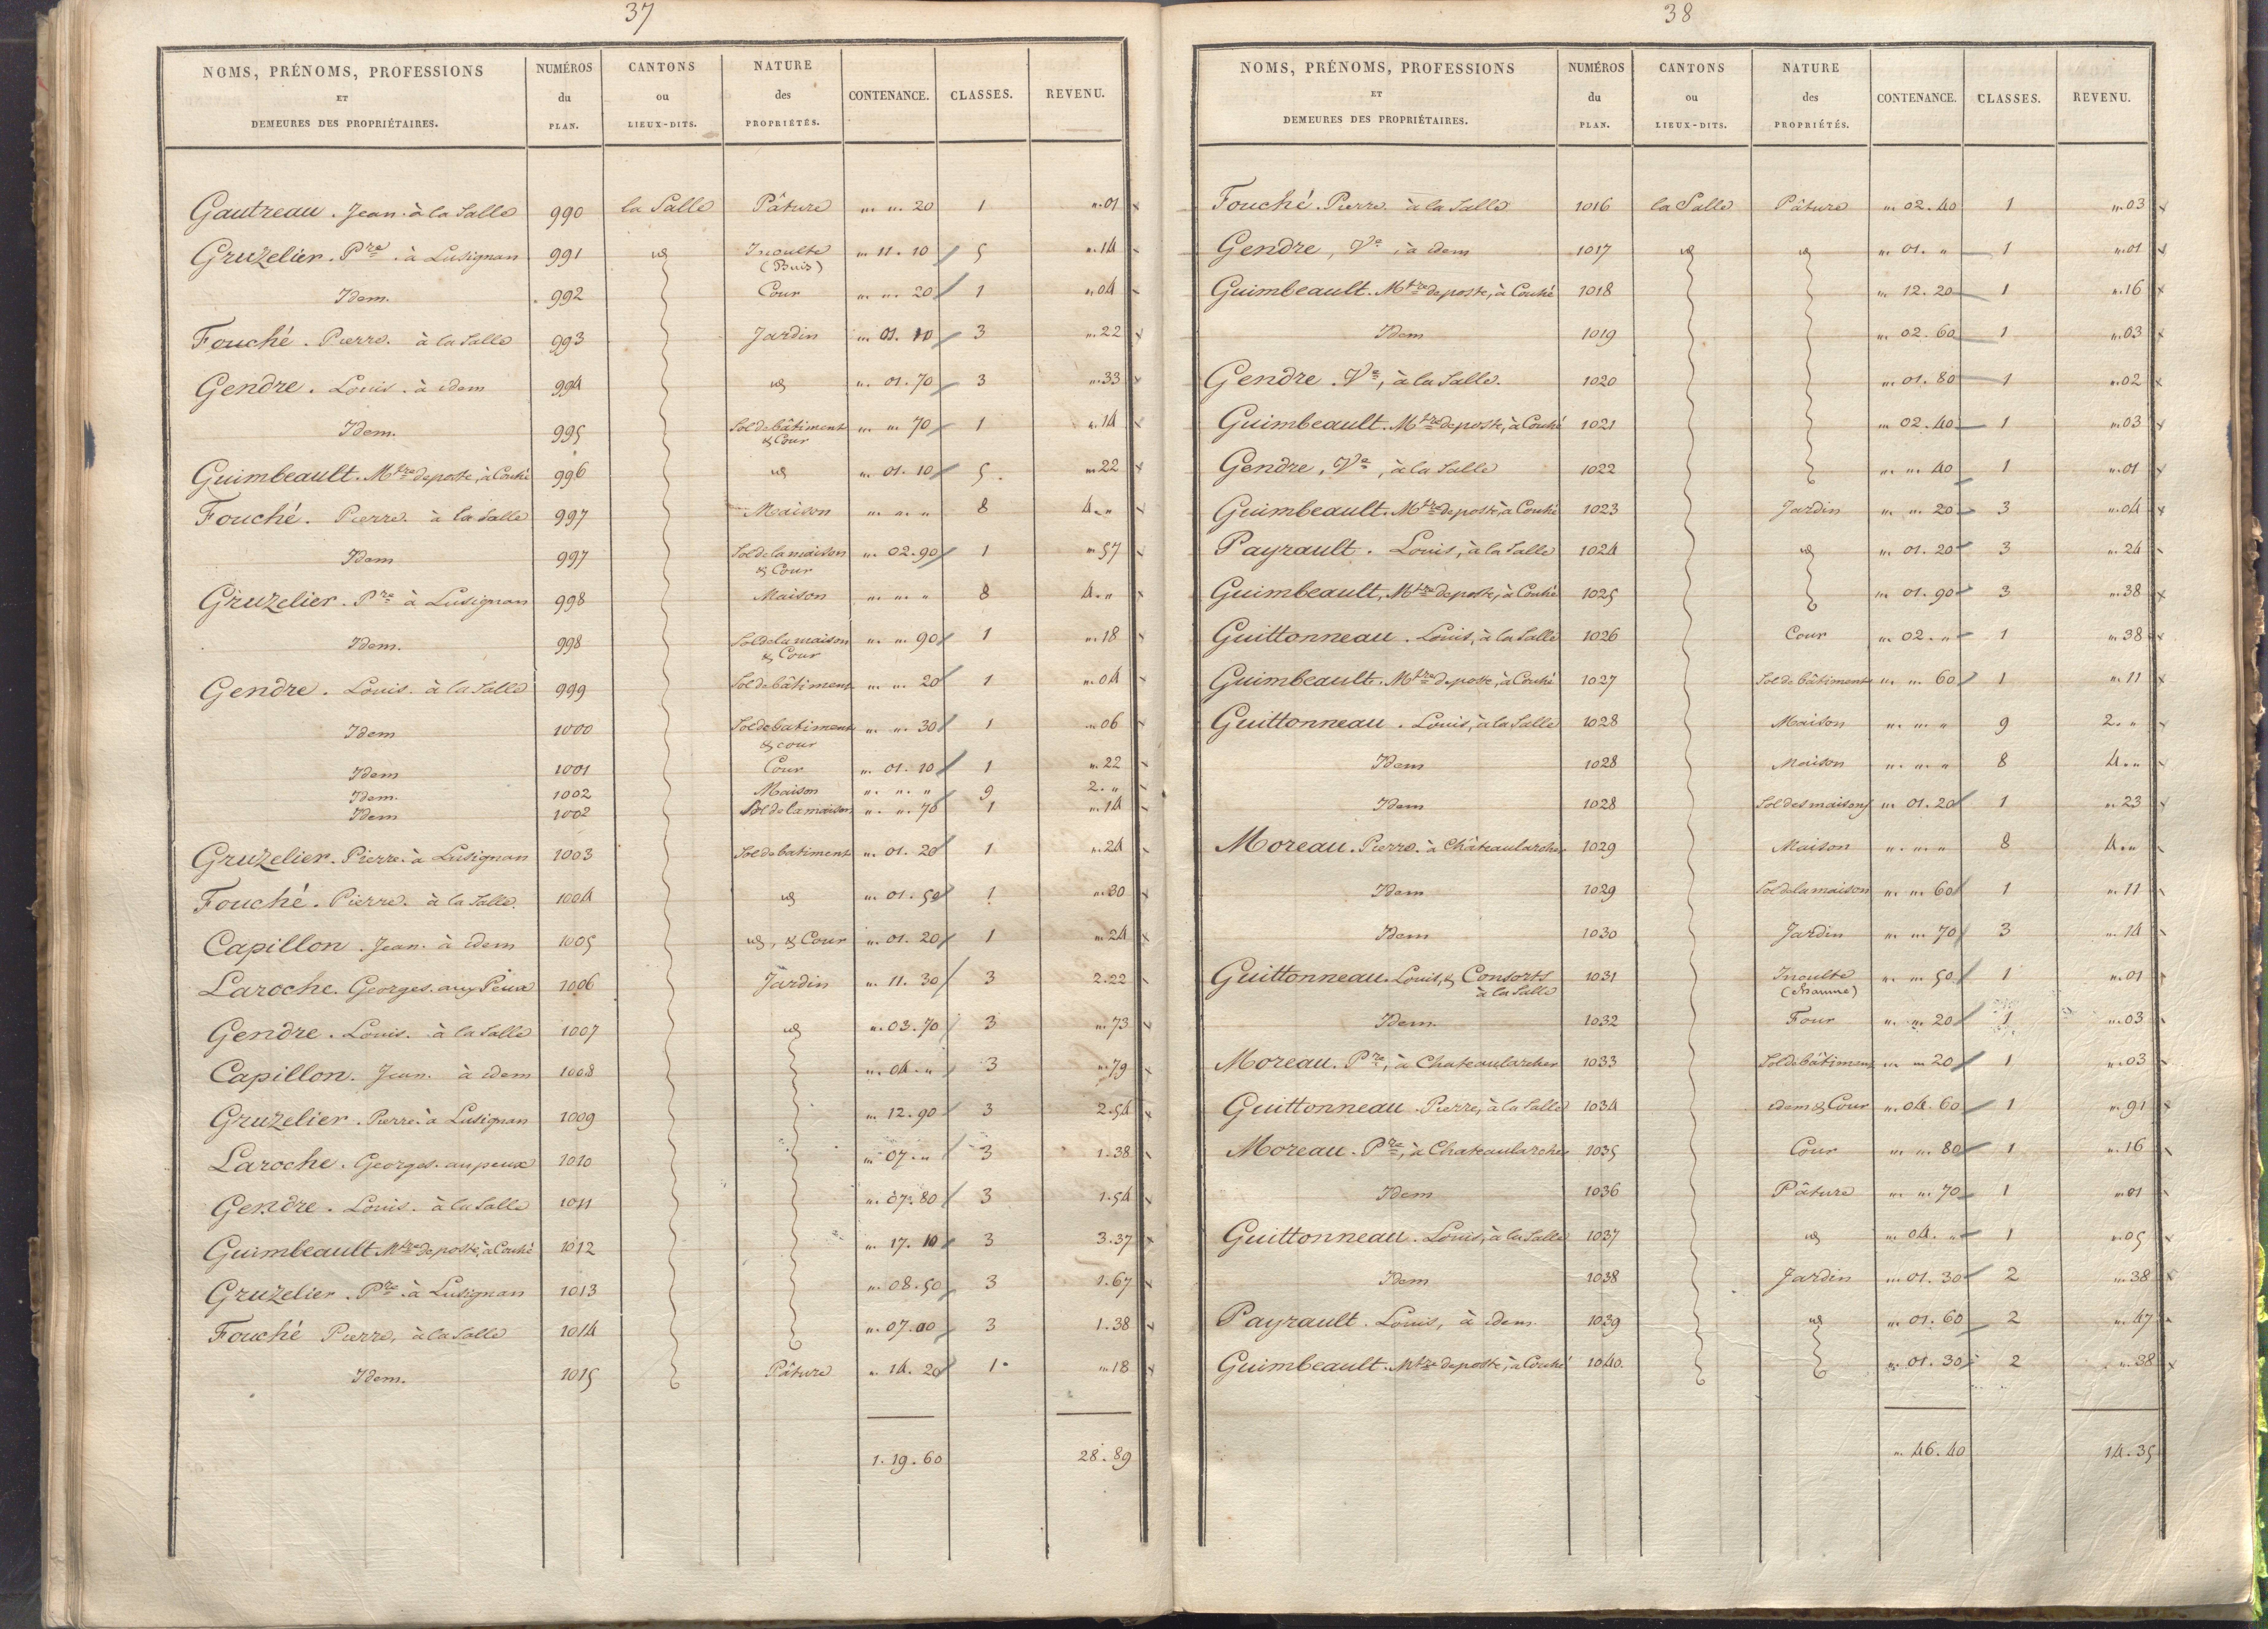 37
NOMS, PRÉNOMS, PROFESSIONS ET DEMEURES DES PROPRIÉTAIRES. NUMÉROS du PLAN. CANTONS ou LIEUX-DITS. NATURE des PROPRIÉTÉS. CONTENANCE. CLASSES. REVENU.
Gautreau. Jean. à la Salle 990 la Salle Pâture " " 20 1 ".01
Gruzelier. Pre. à Lusignan 991 id Inculte (Buis) " 11. 10 5 ".14
Idem. 992 Cour " " 20 1 ".04
Fouché. Pierre. à la Salle 993 Jardin " 01. 10 3 ".22
Gendre. Louis. à idem 994 id " 01. 70 3 ".33
Idem. 995 Sol de bâtiment & Cour " " 70 1 ".14
Guimbeault. Mtre de poste, à Couhé 996 id " 01. 10 5. ".22
Fouché. Pierre. à la Salle 997 Maison " " " 8 4."
Idem 997 Sol de la maison & Cour " 02. 90 1 ".57
Gruzelier. Pre à Lusignan 998 Maison " " " 8 4."
Idem. 998 Sol de la maison & Cour " " 90 1 ".18
Gendre. Louis. à la Salle 999 Sol de bâtiment " " 20 1 ".04
Idem 1000 Sol de batiment & cour " " 30 1 ".06
Idem 1001 Cour " 01. 10 1 ".22
Idem. 1002 Maison " " " 9 2."
Idem 1002 Sol de la maison " " 70 1 ".14
Gruzelier. Pierre. à Lusignan 1003 Sol de batiment " 01. 20 1 ".24
Fouché. Pierre. à la Salle. 1004 id " 01. 50 1 ".30
Capillon. Jean. à idem 1005 id, & Cour " 01. 20 1 ".24
Laroche. Georges. aux Peux 1006 Jardin " 11. 30 3 2.22
Gendre. Louis. à la Salle 1007 id " 03. 70 3 ".73
Capillon. Jean. à idem 1008 " 04. " 3 ".79
Gruzelier. Pierre. à Lusignan 1009 " 12. 90 3 2.54
Laroche. Georges. au peux 1010 " 07. " 3 1.38
Gendre. Louis. à la Salle 1011 " 07. 80 3 1.54
Guimbeault Mtre de poste, à Couhé 1012 " 17. 10 3 3.37
Gruzelier. Pre. à Lusignan 1013 " 08. 50 3 1.67
Fouché Pierre, à la Salle 1014 " 07. 00 3 1.38
Idem. 1015 Pâture " 14. 20 1 ".18
1. 19. 60 28. 89
38
NOMS, PRÉNOMS, PROFESSIONS ET DEMEURES DES PROPRIÉTAIRES. NUMÉROS du PLAN. CANTONS ou LIEUX-DITS. NATURE des PROPRIÉTÉS. CONTENANCE. CLASSES. REVENU.
Fouché. Pierre. à la Salle 1016 la Salle Pâture " 02. 40 1 ".03
Gendre, Ve, à idem 1017 id id " 01. " 1 ".01
Guimbeault. Mtre de poste, à Couhé 1018 " 12. 20 1 ".16
Idem 1019 " 02. 60 1 ".03
Gendre. Ve, à la Salle. 1020 " 01. 80 1 ".02
Guimbeault. Mtre de poste, à Couhé 1021 " 02. 40 1 ".03
Gendre, Ve, à la Salle 1022 " " 40 1 ".01
Guimbeault. Mtre de poste, à Couhé 1023 Jardin " " 20 3 ".04
Payrault. Louis, à la Salle 1024 id " 01. 20 3 ".24
Guimbeault, Mtre de poste, à Couhé 1025 " 01. 90 3 ".38
Guittonneau. Louis, à la Salle 1026 Cour " 02. " 1 ".38
Guimbeault. Mtre de poste, à Couhé 1027 Sol de bâtiment " " 60 1 ".11
Guittonneau. Louis, à la Salle 1028 Maison " " " 9 2. "
Idem 1028 Maison " " " 8 4. "
Idem 1028 Sol des maisons " 01. 20 1 ".23
Moreau. Pierre. à Châteaularcher 1029 Maison " " " 8 4."
Idem 1029 Sol de la maison " " 60 1 ".11
Idem 1030 Jardin " " 70 3 ".14
Guittonneau. Louis, & Consorts à la Salle 1031 Inculte (chaume) " " 50 1 ".01
Idem. 1032 Four " " 20 1 ".03
Moreau. Pre, à Chateaularcher 1033 Sol de bâtiment " " 20 1 ".03
Guittonneau. Pierre, à la Salle 1034 idem & Cour " 04. 60 1 ".91
Moreau. Pre, à Chateaularcher 1035 Cour " " 80 1 ".16
Idem 1036 Pâture " " 70 1 ".01
Guittonneau. Louis, à la Salle 1037 id " 04. " 1 ".05
Idem 1038 Jardin " 01. 30 2 ".38
Payrault. Louis, à idem. 1039 id " 01. 60 2 ".47
Guimbeault. Mtre de poste, à Couhé 1040. " 01. 30 2 ".38
". 46. 40 14. 35